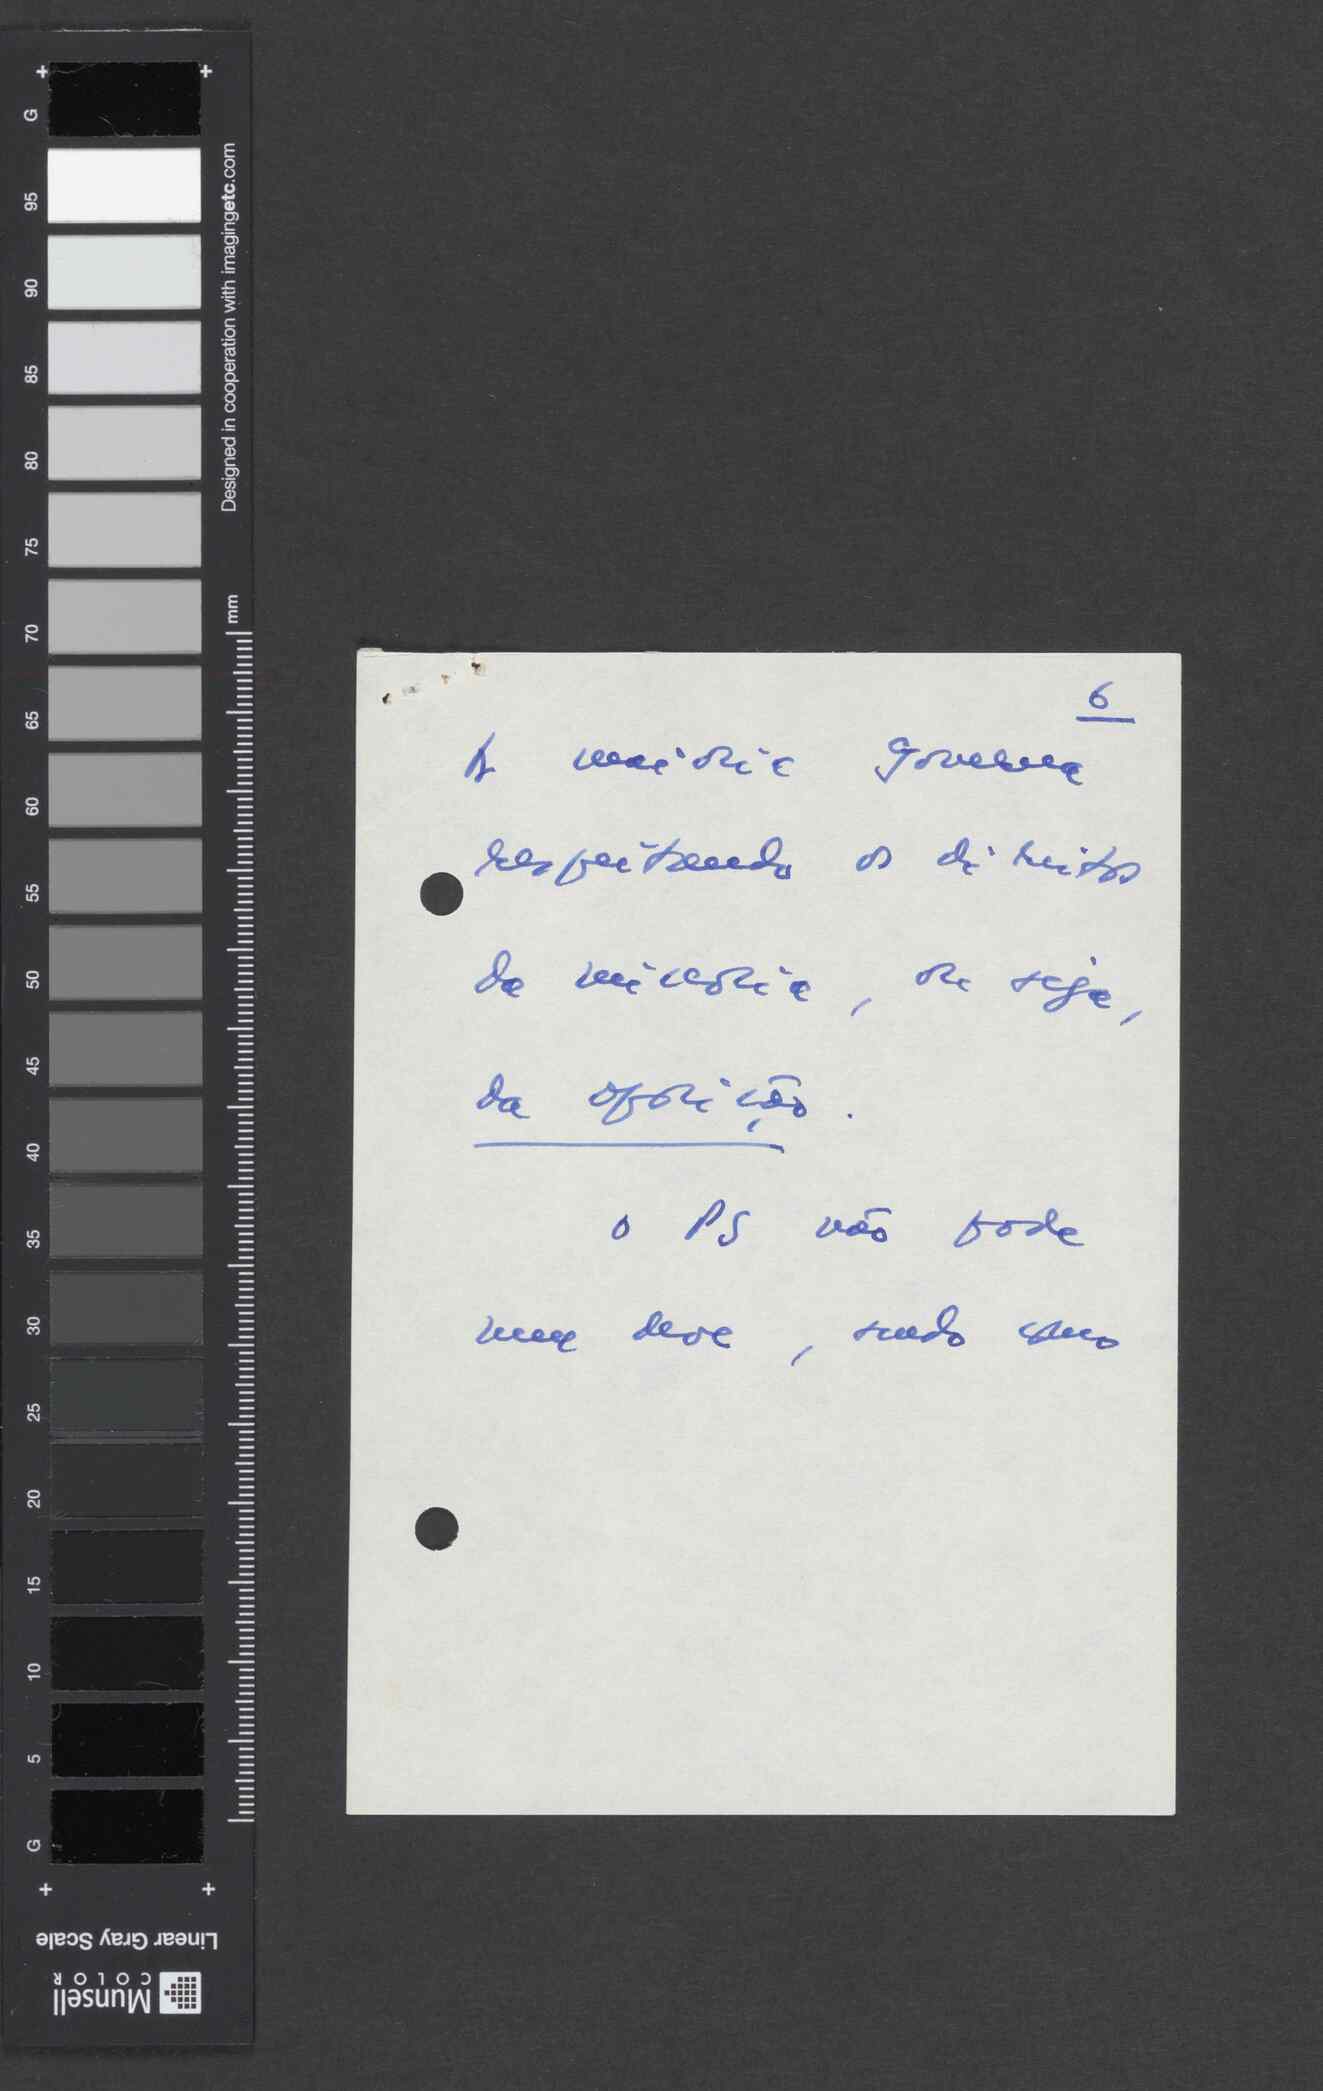 6
A maioria governa
respeitando os direitos
da minoria, ou seja,
da oposição.
O PS não pode
nem deve, sendo como
G
95
90
85
80
75
70
65
60
55
50
45
40
35
30
25
20
15
10
5
G
Designed in cooperation with imagingetc.com
mm
Linear Gray Scale
Munsell
COLOR